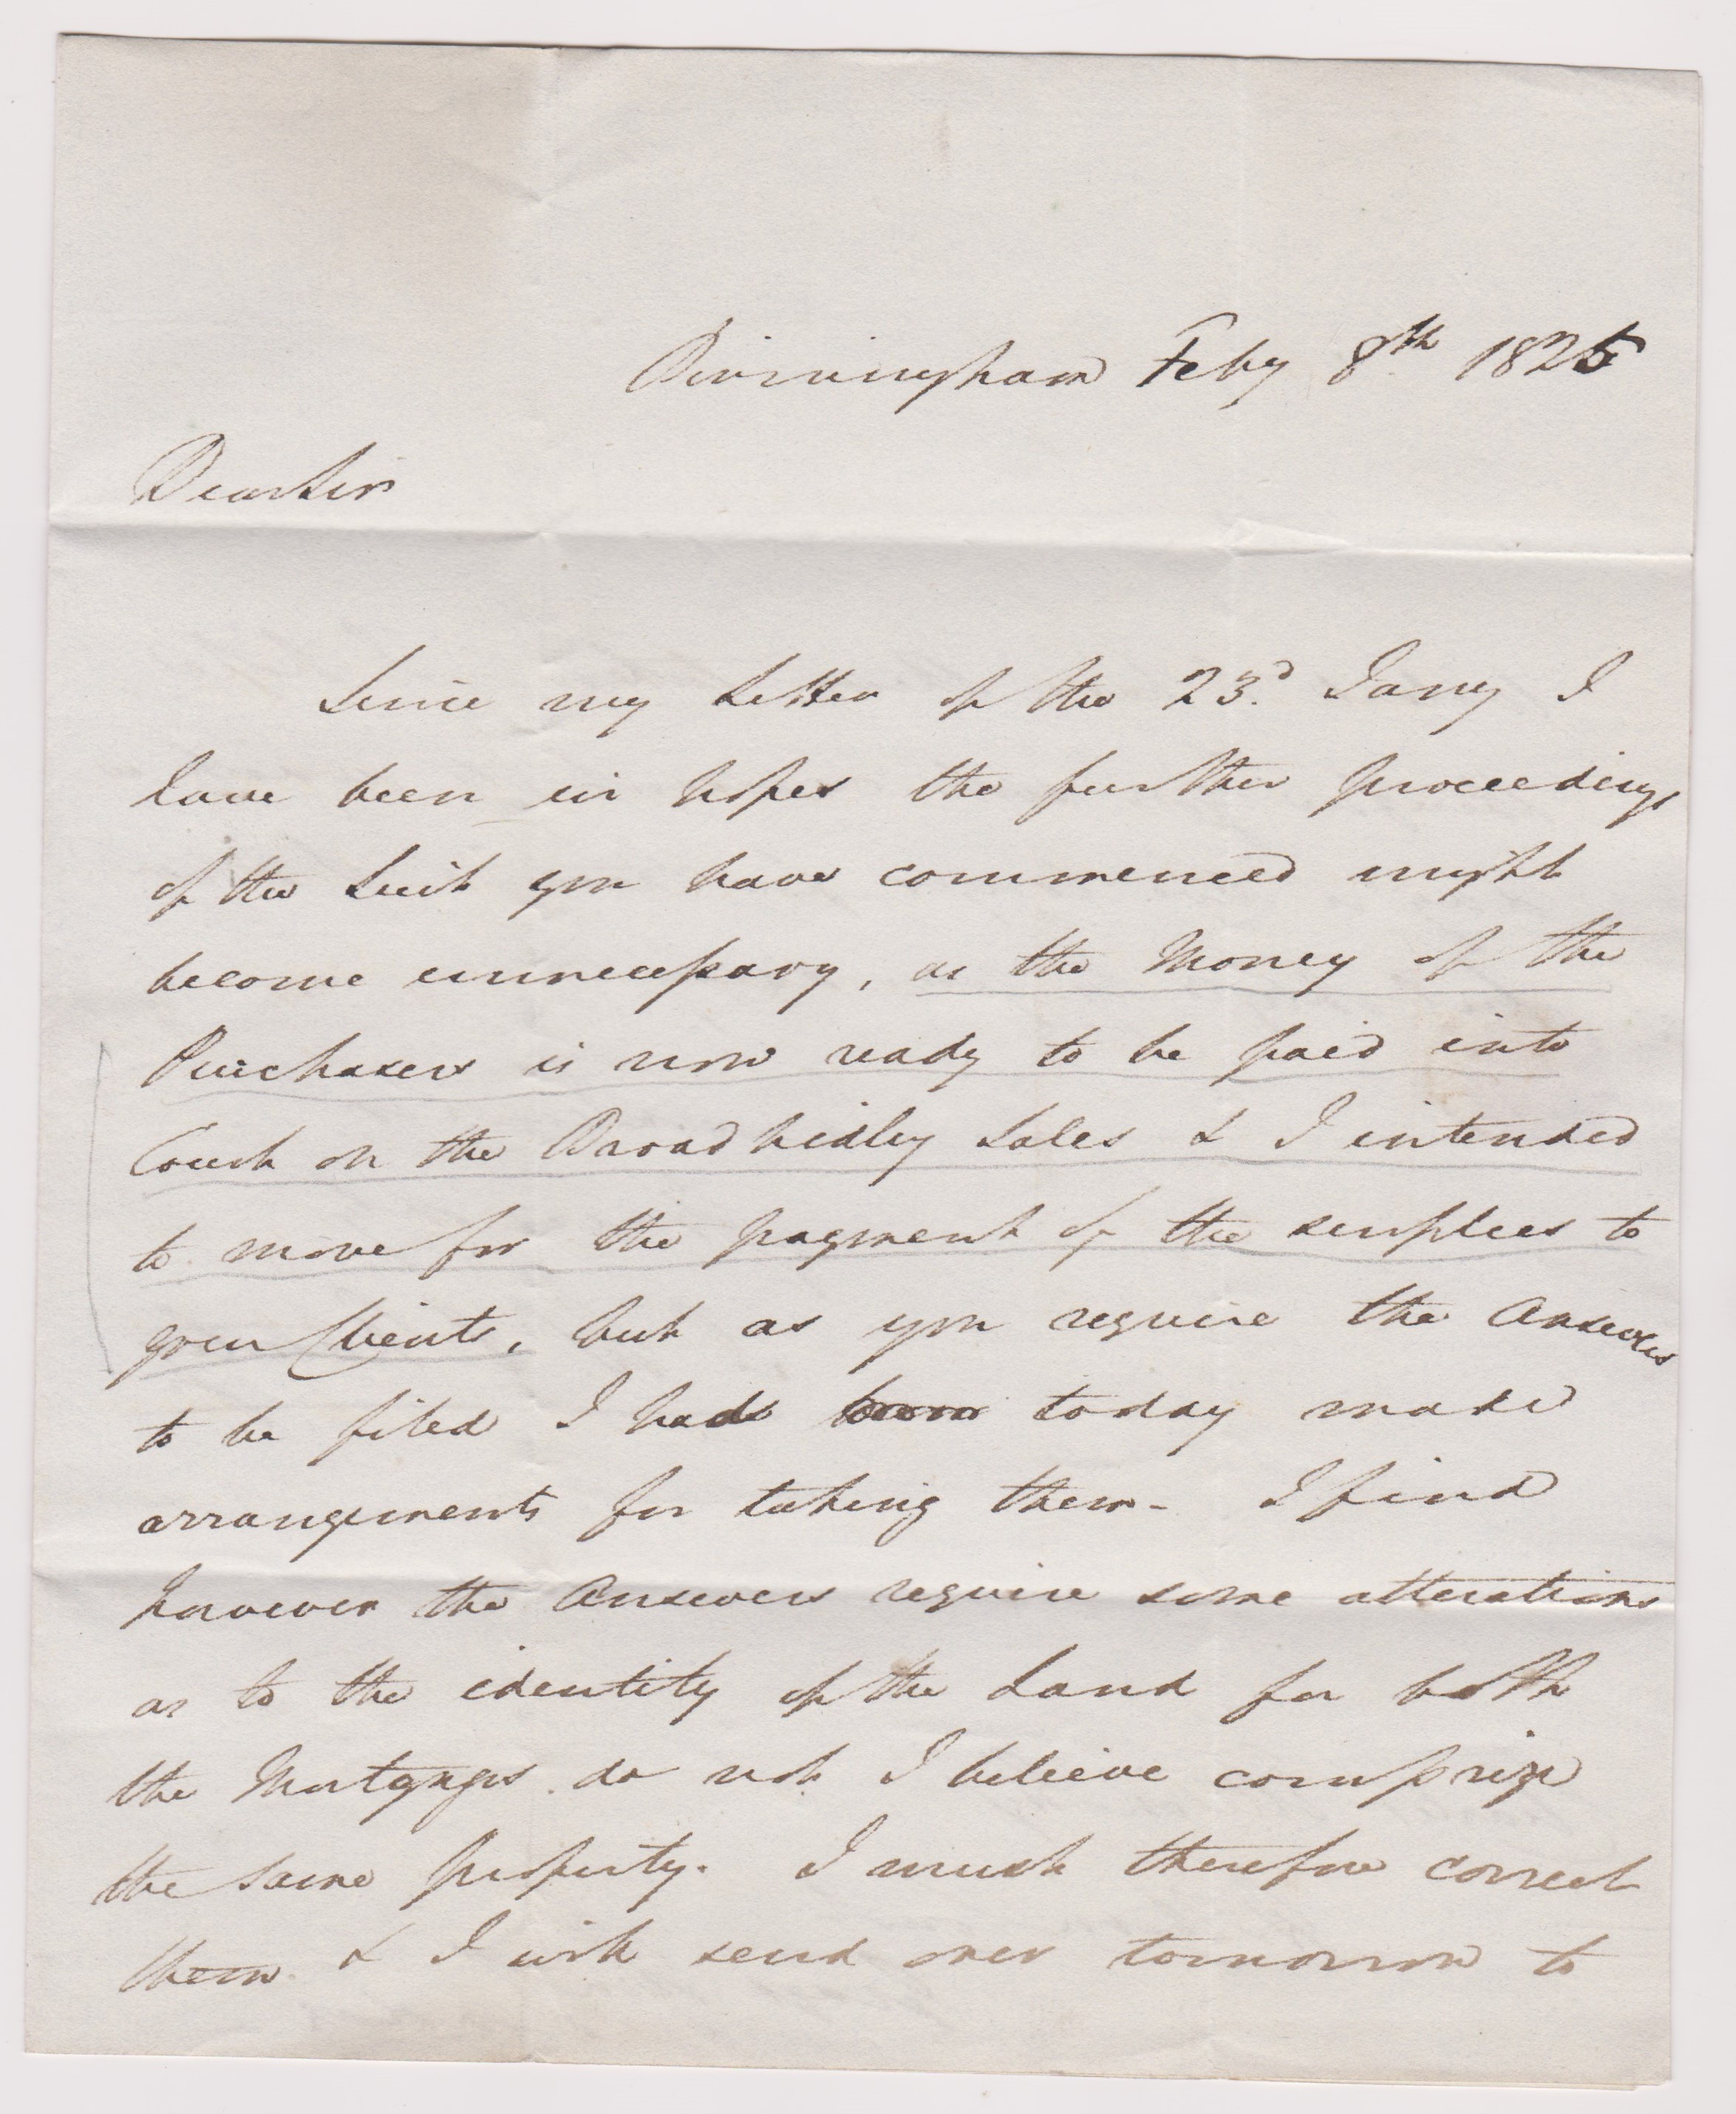 Birmingham Feby 8th 1825
Dear Sir
Since my Letter of the 23d. Jany I
have been in hopes the further proceedings
of the Suit you have commenced might
become unnecessary, as the Money of the
Purchasers is now ready to be paid into
Court on the Broadhidley Sales & I intended
to move for the payment of the surplus to
your Clients, but as you require the Answers
to be filed I had today made
arrangements for taking them - I find
however the Answers require some alterations
as to the identity of the Land for both
the Mortgages do not I believe comprize
the same property. I must therefore correct
them & I will send over tomorrow to